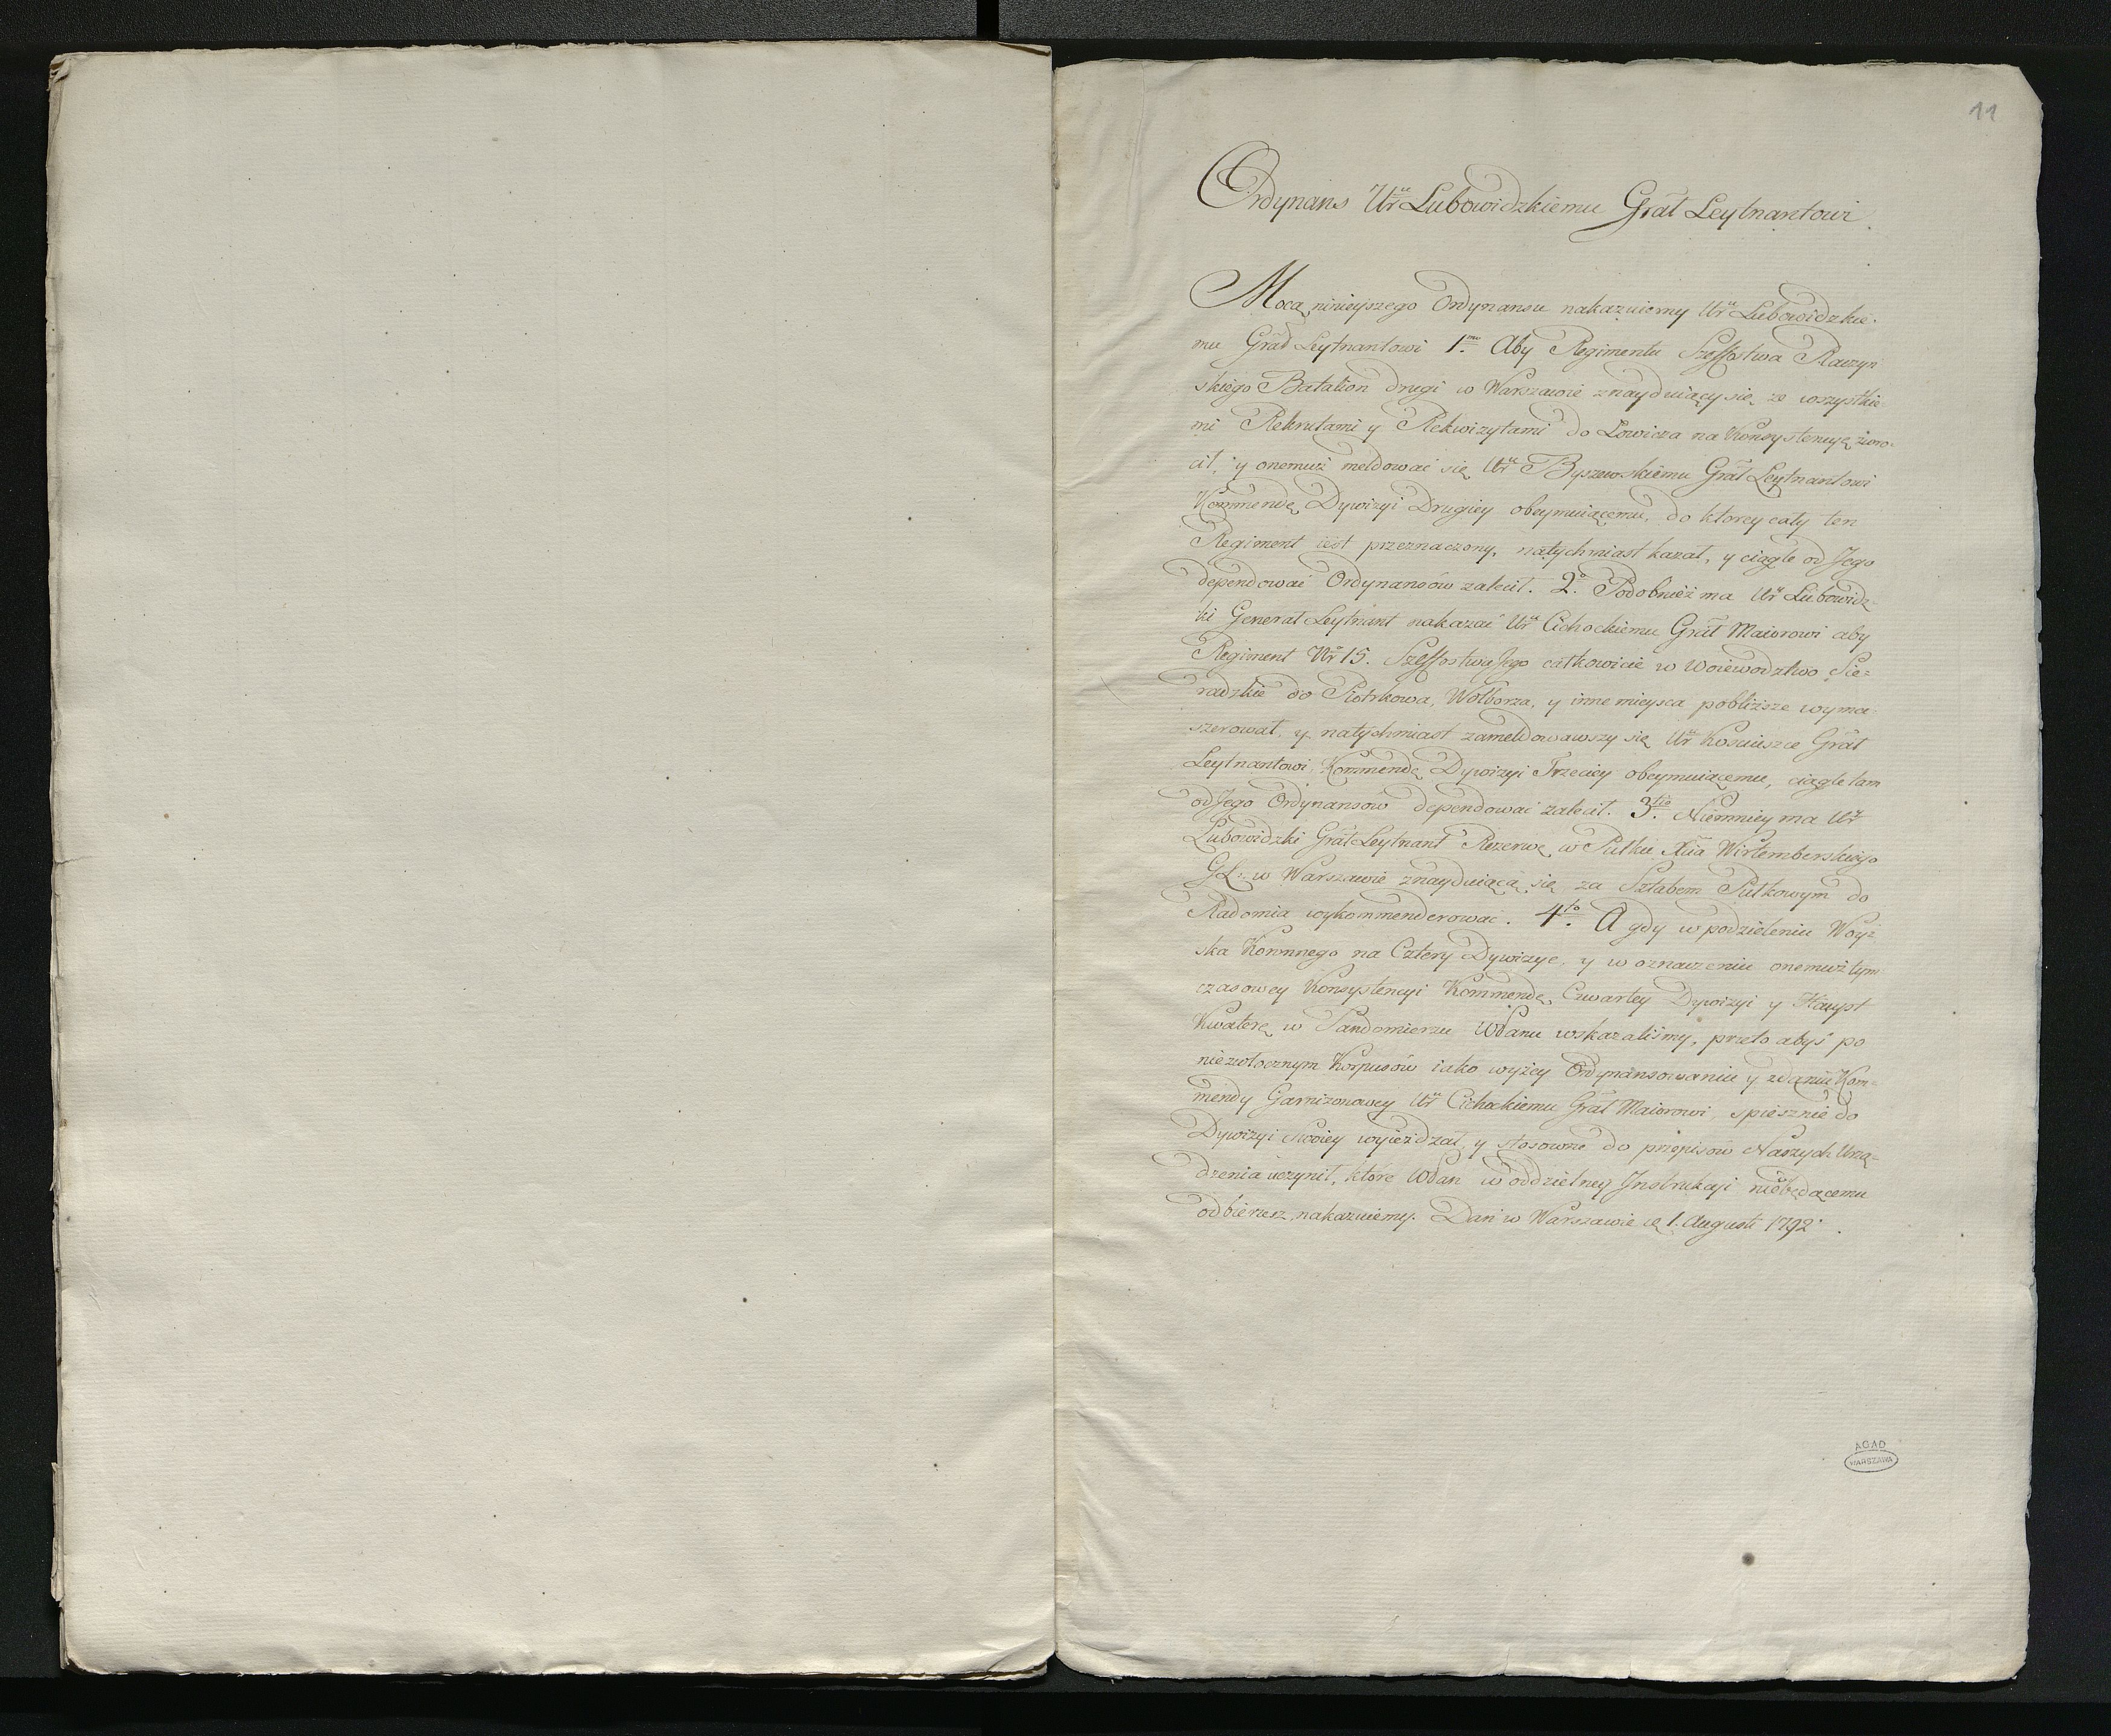 11
Ordynans Uru Lubowidzkiemu Grał Leytnantowi
Mocą ninieyszego Ordynansu nakazuiemy Uru Lubowidzkie-
mu Grał Leytnantowi 1mo Aby Regimentu Szeffostwa Raczyń
skiego Batalion drugi w Warszawie znayduiący się ze wszystkie
mi Rekrutami y Rekwizytami do Łowicza na Konsystencyę zwró-
cił, y onemuż meldować się Uru Byszewskiemu Grał Leytnantowi
Kommendę Dywizyi Drugiey obeymuiącemu, do ktorey cały ten
Regiment iest przeznaczony, natychmiast kazał, y ciągle od Jego
dependować Ordynansów zalecił. 2o Podobnież ma Ur Lubowidz-
ki Generał Leytnant nakazać Uru Cichockiemu Grał Maiorowi aby
Regiment Nr 15. Szeffostwa Jego całkowicie w Woiewodztwo Sie=
radzkie do Piotrkowa, Wolborza, y inne mieysca pobliższe wyma-
szerował, y natychmiast zameldowawszy się Ur Kosciuszce Grał
Leytnantowi Kommendę Dywizyi Trzeciey obeymuiącemu, ciągle tam
od Jego Ordynansów dependować zalecił. 3tio Niemniey ma Ur
Lubowidzki Grał Leytnant Rezerwę w Pułku Xcia Wirtemberskiego
GL: w Warszawie znayduiącą się za Sztabem Pułkowym do
Radomia wykommenderować. 4to A gdy w podzieleniu Woy=
ska Koronnego na Cztery Dywizye, y w oznaczeniu onemuż tym
czasowey Konsystencyi Kommendę Czwartey Dywizyi y Haupt
Kwaterę w Sandomierzu WPanu wskazaliśmy, przeto abyś po
niezwłocznym Korpusów iako wyżey Ordynansowaniu y zdaniu Kom=
mendy Garnizonowey Uru Cichockiemu Grał Maiorowi, spiesznie do
Dywizyi Swoiey wyieżdżał, y stosowne do przepisów Naszych Urzą=
dzenia uczynił, które WPan w oddzielney Instrukcyi
odbierzesz, nakazuiemy. Dan w Warszawie 1. Augusti 1792
AGAD
WARSZAWA